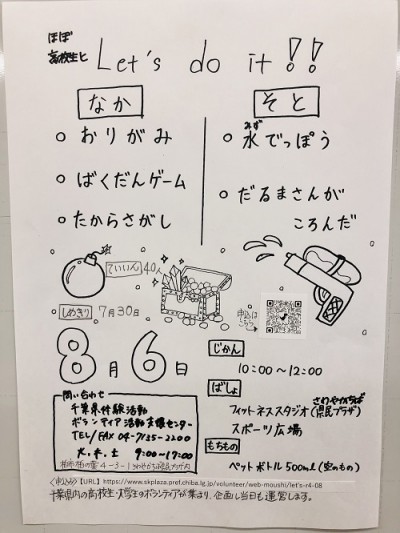 ほぼ
高校生と Let's do it!!
なか
そと
おりがみ
ばくだんゲーム
たからさがし
みず
水でっぽう
だるまさんが
ころんだ
ていいん 40人
しめきり 7月30日
申込は
こちら
8月6日
じかん
10:00〜12:00
ばしょ
さわやかちば
フィットネススタジオ(県民プラザ)
スポーツ広場
もちもの
ペットボトル500ml(空のもの)
問い合わせ
千葉県体験活動
ボランティア活動支援センター
TEL/FAX 04-7135-2200
火.木.土 9:00〜17:00
4-3-1 さわやかちば県民プラザ内
【URL】https://www.skplaza.pref.chiba.lg.jp/volunteer/web-moushi/let's-r4-08
千葉県内の高校生・大学生のボランティアが集まり、企画し当日も運営します。